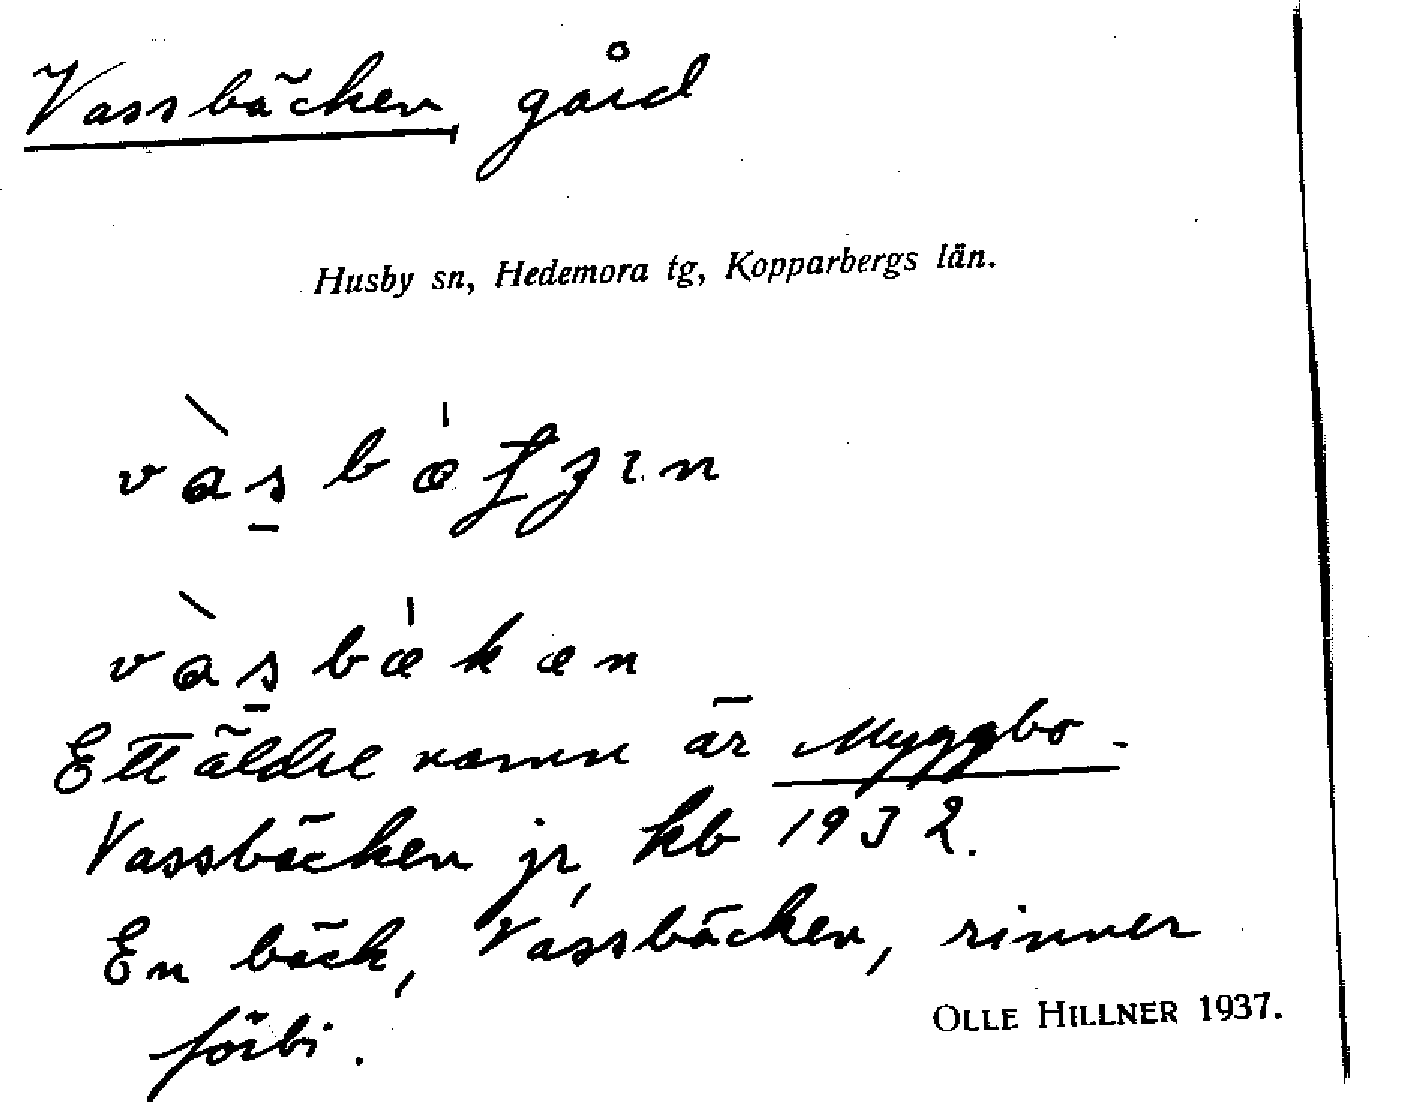 Vassbäcken gård
Husby sn, Hedemora tg, Kopparbergs län.
vàs̠bæ̍ʃʒɪn
vàs̠bæ̍kæn
Ett äldre namn är Myggbo.
Vassbäcken jr, kb 1932.
En bäck, Vassbäcken, rinner
förbi.
OLLE HILLNER 1937.